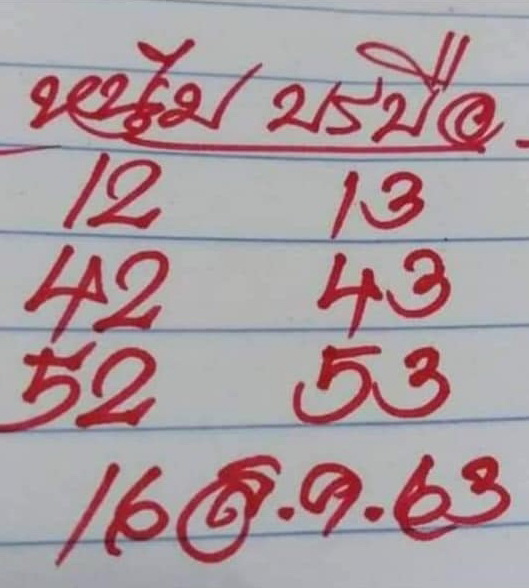 หนุ่ม บรบือ
12 13
42 43
52 53
16 ส.ค. 63